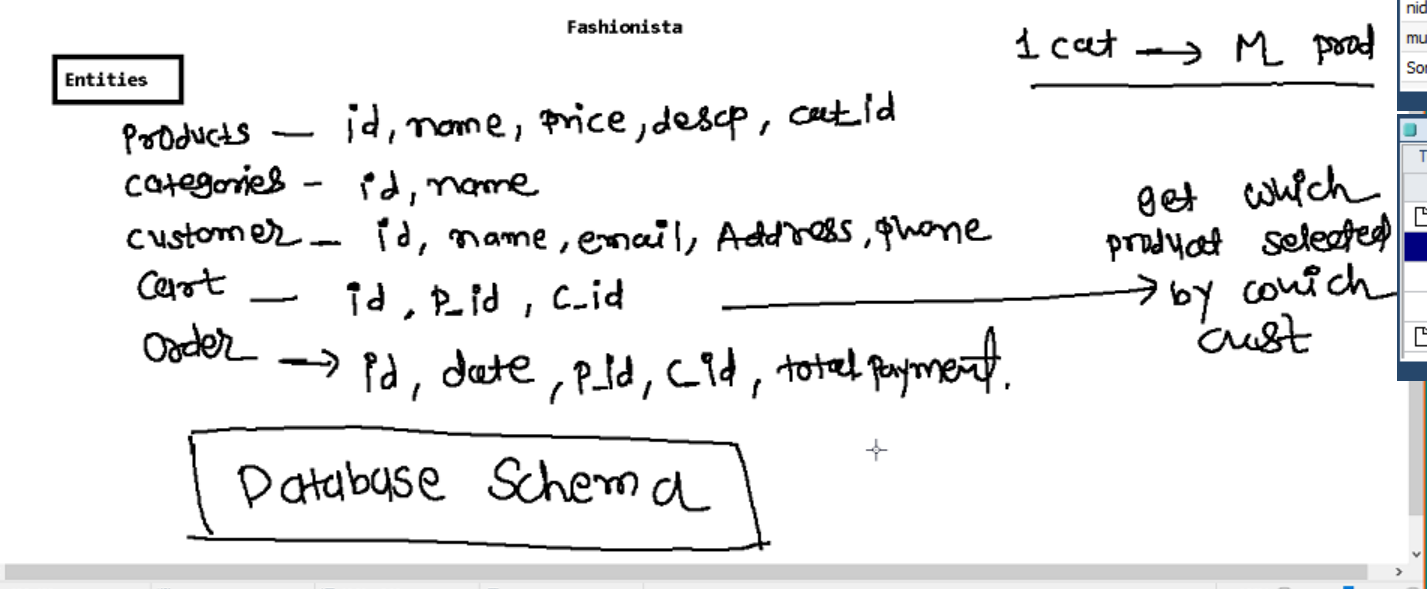 Fashionista
1 cat → M prod
Entities
Products — id, name, price, descp, cat_id
categories - id, name
customer — id, name, email, Address, phone
Cart — id, P_id, C_id
get which
product selected
by which
cust
Order → id, date, P_id, C_id, total payment.
Database Schema
nid
mu
Sor
T